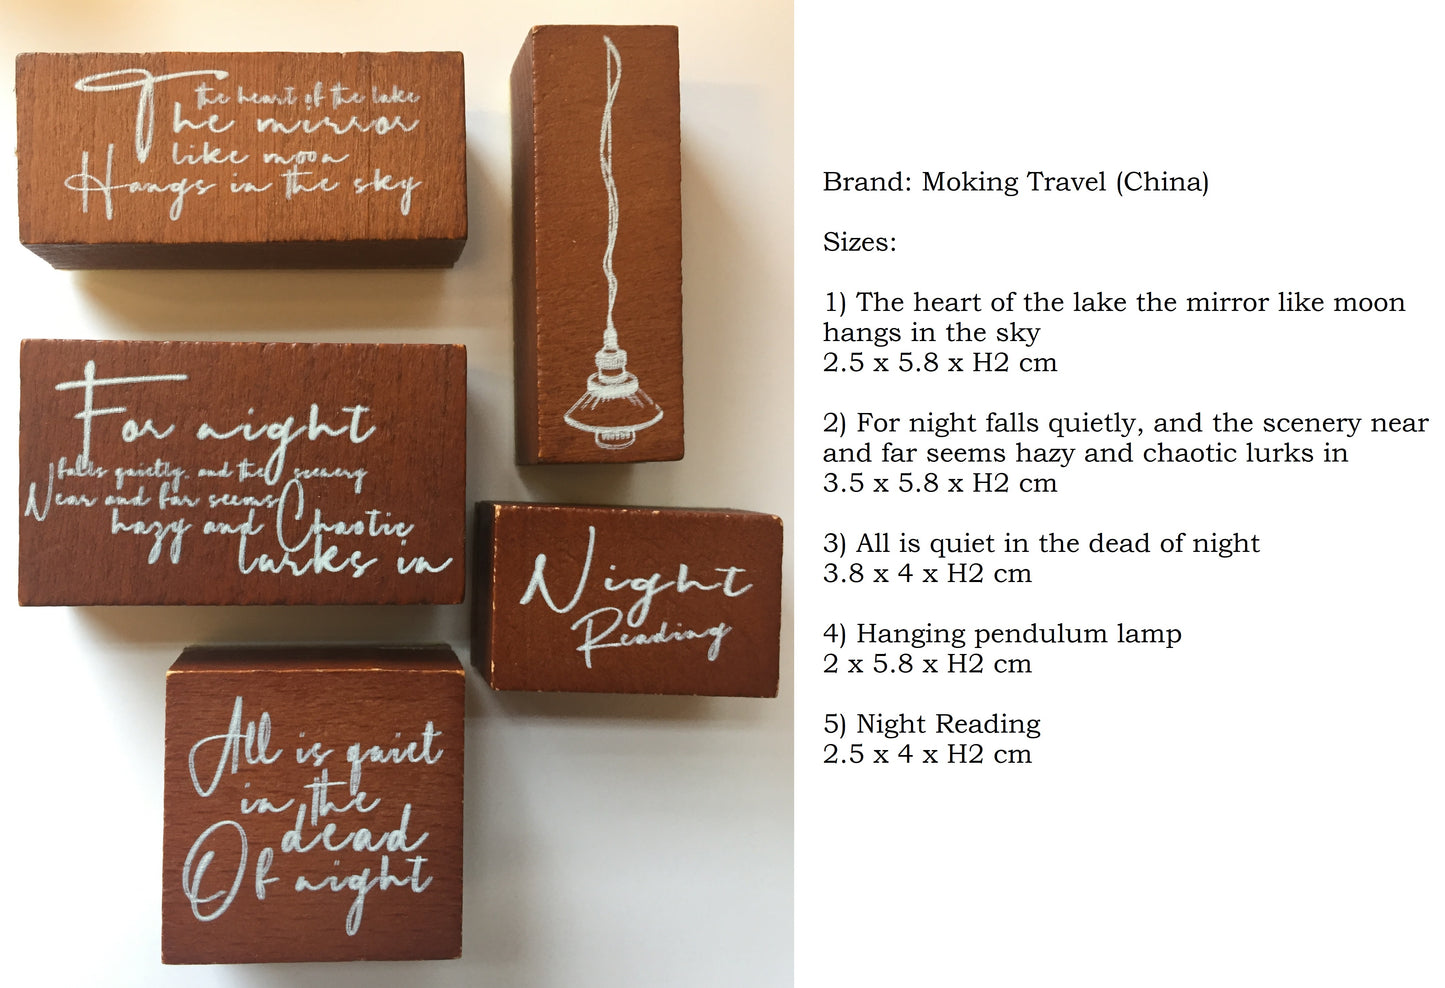 the heart of the lake
The mirror
like moon
Hangs in the sky
For night
falls quietly, and the scenery
Near and far seems
hazy and Chaotic
lurks in
Night
Reading
All is quiet
in the
dead
Of night
Brand: Moking Travel (China)
Sizes:
1) The heart of the lake the mirror like moon
hangs in the sky
2.5 x 5.8 x H2 cm
2) For night falls quietly, and the scenery near
and far seems hazy and chaotic lurks in
3.5 x 5.8 x H2 cm
3) All is quiet in the dead of night
3.8 x 4 x H2 cm
4) Hanging pendulum lamp
2 x 5.8 x H2 cm
5) Night Reading
2.5 x 4 x H2 cm